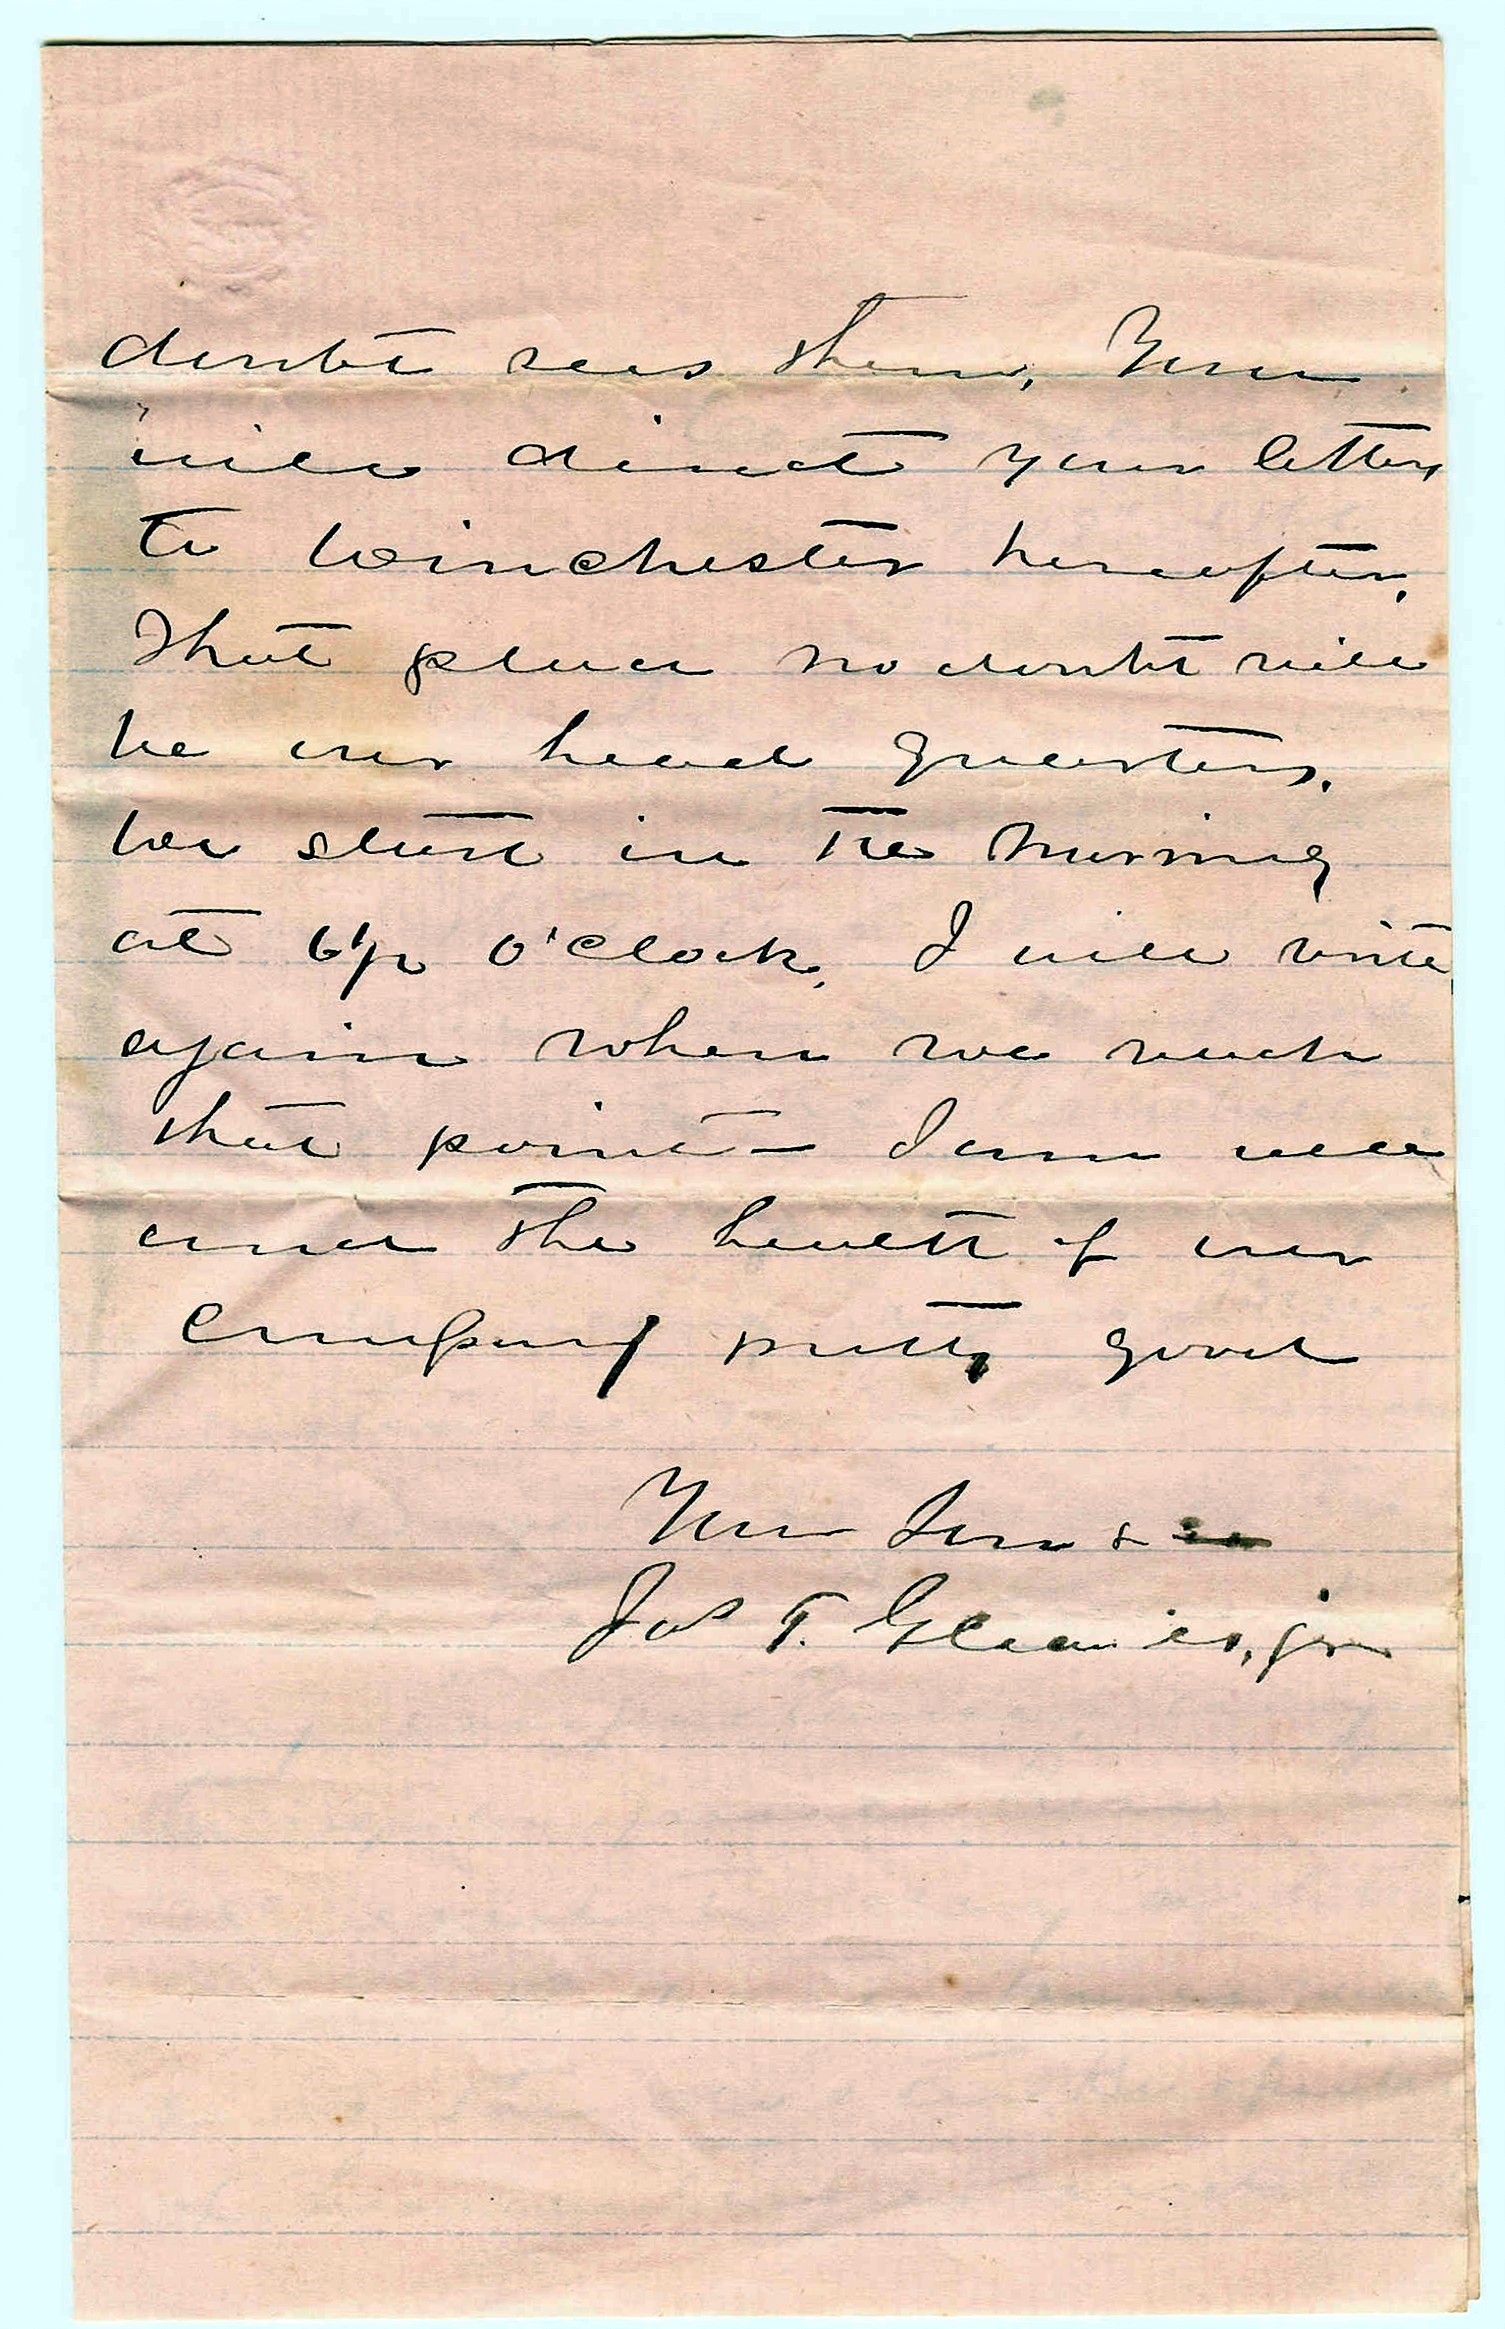 doubt sees them, You
will direct your letters
to Winchester hereafter,
That place no doubt will
be our head quarters.
We start in the morning
at 6 1/2 O'Clock, I will write
again when we reach
that point — I am well
and the health of our
company pretty good
Your Son &
Jas T. jr